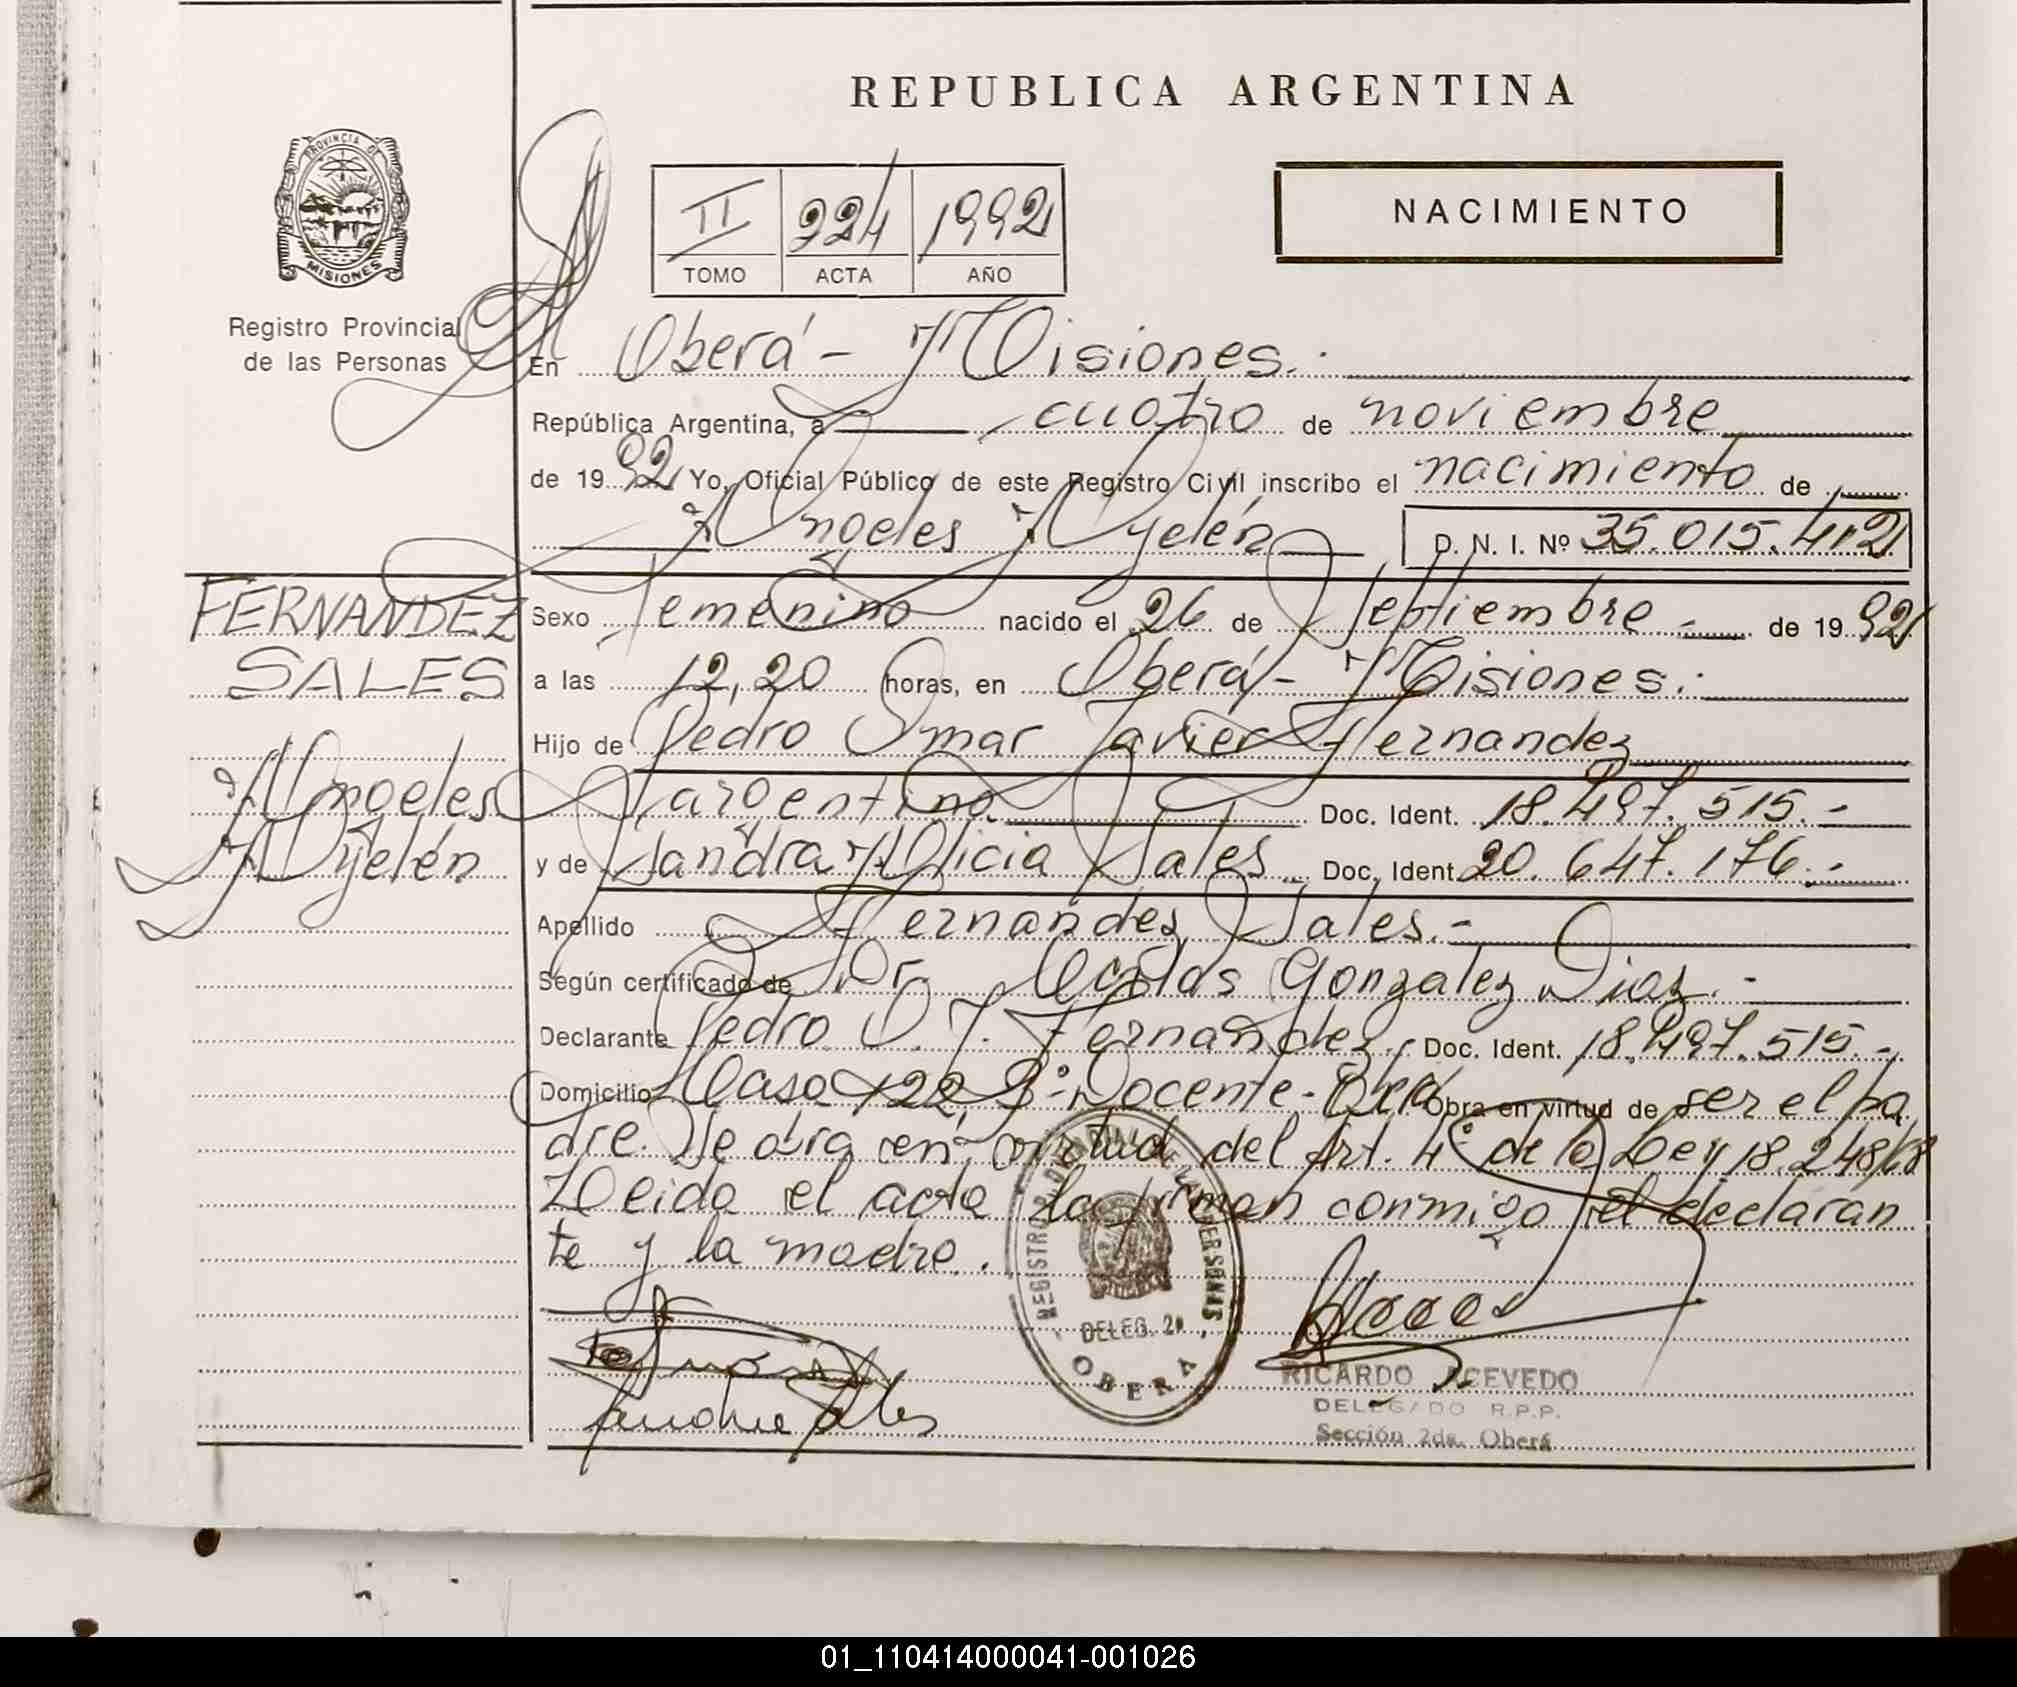 REPUBLICA ARGENTINA
PROVINCIA DE
MISIONES
Registro Provincial
de las Personas
II 224 1992
TOMO ACTA AÑO
NACIMIENTO
En Oberá - Misiones.
República Argentina, a cuatro de noviembre
de 1992 Yo, Oficial Público de este Registro Civil inscribo el nacimiento de
Angeles Ayelén D. N. I. Nº 35.015.412
FERNANDEZ
SALES
Angeles
Ayelén
Sexo Femenino nacido el 26 de Septiembre de 1992
a las 12,20 horas, en Oberá - Misiones.
Hijo de Pedro Omar Javier Fernandez
argentino Doc. Ident. 18.497.515.-
y de Sandra Alicia Sales Doc. Ident. 20.647.176.-
Apellido Fernandez Sales.-
Según certificado de Dr. Gonzalez Diaz.-
Declarante Pedro O. J. Fernandez Doc. Ident. 18.497.515.-
Domicilio Casa 122, Bº Docente - Oberá Obra en virtud de ser el pa
dre. Se obra en virtud del Art. 4° de la Ley 18.248/68
Leida el acta la firman conmigo el declaran
te y la madre.
REGISTRO PROVINCIAL DE LAS PERSONAS
DELEG. 2a
OBERA
Sandra Sales
RICARDO ACEVEDO
DELEGADO R.P.P.
Sección 2da. Oberá
01_110414000041-001026